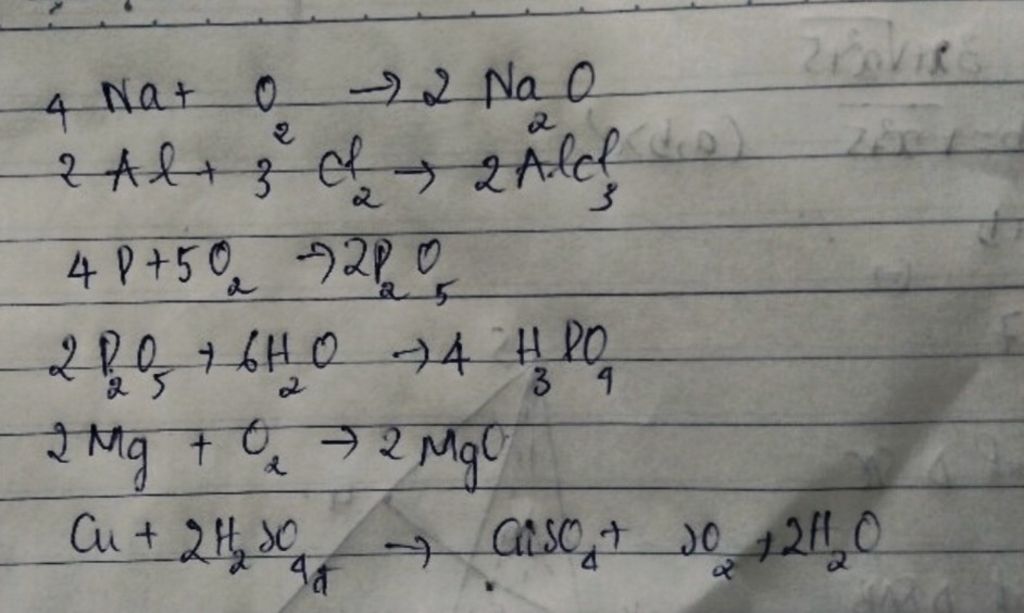 4 Na + O₂ → 2 Na₂O
2 Al + 3 Cl₂ → 2 AlCl₃
4 P + 5O₂ → 2P₂O₅
2 P₂O₅ + 6H₂O → 4 H₃PO₄
2 Mg + O₂ → 2 MgO
Cu + 2H₂SO₄ → CuSO₄ + SO₂ + 2H₂O